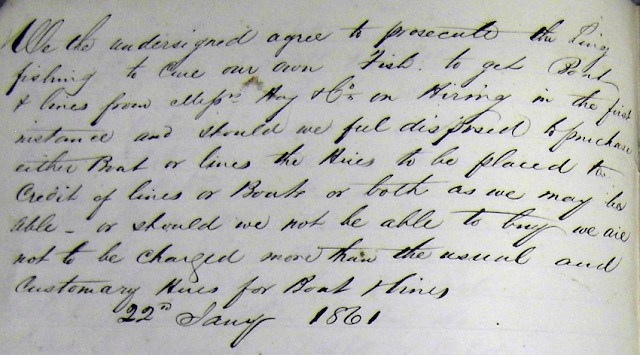 We the undersigned agree to prosecute the Ling
fishing to Cure our own Fish. to get Boat
& lines from Messrs Hay & Co. on Hiring in the first
instance and should we feel disposed to purchase
either Boat or lines the Hires to be placed to
Credit of lines or Boats or both as we may be
able - or should we not be able to buy we are
not to be charged more than the usual and
Customary Hires for Boat & lines
22nd Jany 1861